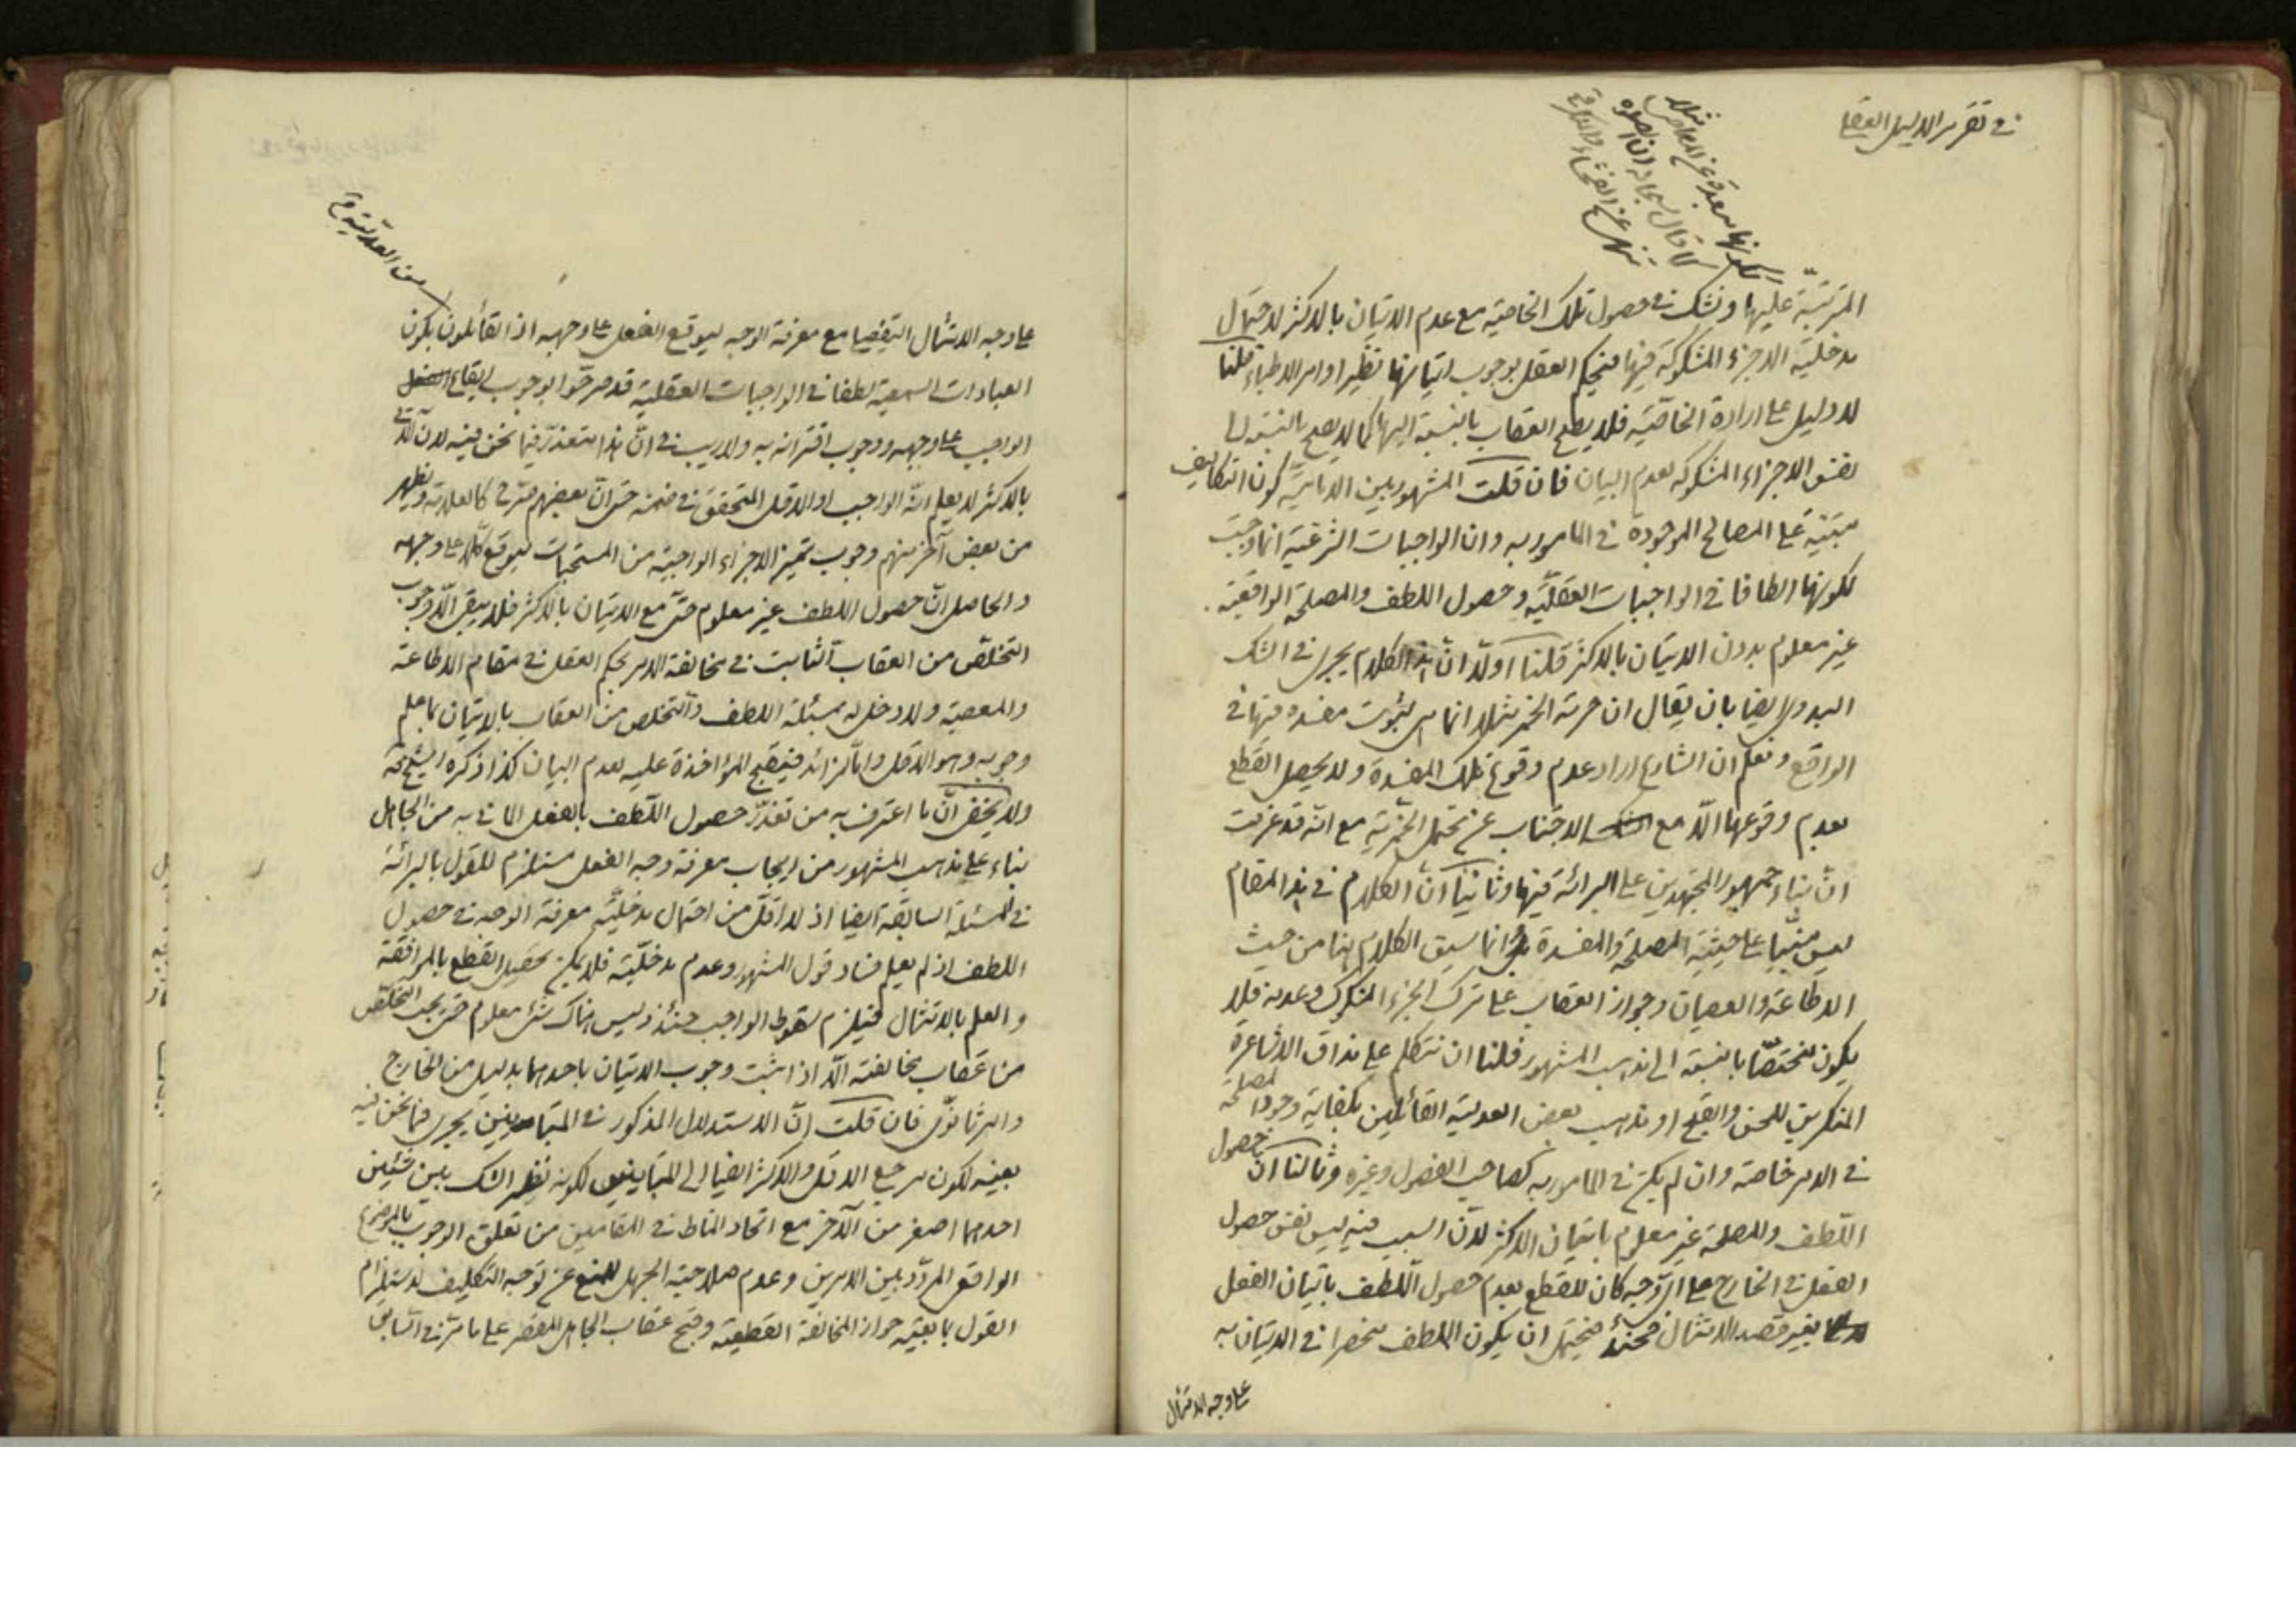 في تقرير الدليل العقلي
لكونها مبعدة عن المعاصي مثلا
كما قال سبحانه ان الصلوة
تنهى عن الفحشاء والمنكر
المترتبة عليها ونشك في حصول تلك الخاصية مع عدم الاتيان بالاكثر لاحتمال
مدخلية الاجزاء المشكوكة فيها فيحكم العقل بوجوب اتيانها نظير اوامر الاطباء قلنا
لا دليل على ارادة الخاصية فلا يصح العقاب بالنسبة اليها كما لا يصح بالنسبة الى
نفس الاجزاء المشكوكه لعدم البيان فان قلت المشهور بين الامامية كون التكاليف
مبتنية على المصالح الموجودة في المامور به وان الواجبات الشرعية انما وجبت
لكونها الطافا في الواجبات العقلية وحصول اللطف والمصلحة الواقعية
غير معلوم بدون الاتيان بالاكثر قلنا اولا ان هذا الكلام يجري في الشك
البدوي ايضا بان يقال ان حرمة الخمر مثلا انما هي لثبوت مفسدة فيها في
الواقع ونعلم ان الشارع اراد عدم وقوع تلك المفسدة ولا يحصل القطع
بعدم وقوعها الا مع الاجتناب عن محتمل الخمرية مع انه قد عرفت
ان بناء جمهور المجتهدين على البرائة فيها وثانيا ان الكلام في هذا المقام
ليس مبنيا على حيثية المصلحة والمفسدة بل انما سيق الكلام هنا من حيث
الاطاعة والعصيان وجواز العقاب على ترك الجزء المشكوك وعدمه فلا
يكون مختصا بالنسبة الى مذهب المشهور فلنا ان نتكلم على مذاق الاشاعرة
المنكرين للحسن والقبح او مذهب بعض العدلية القائلين بكفاية وجود المصلحة
في الامر خاصة وان لم يكن في المامور به كصاحب الفصول وغيره وثالثا ان حصول
اللطف والمصلحة غير معلوم باتيان الاكثر لان السبب فيه ليس نفس حصول
الفعل في الخارج على اي وجه كان للقطع بعدم حصول اللطف باتيان الفعل
بغير قصد الامتثال فحينئذ فيحتمل ان يكون اللطف منحصرا في الاتيان به
على وجه الامتثال
من العدلية
على وجه الامتثال التفصيلي مع معرفة الوجه ليوقع الفعل على وجهه اذ القائلون بكون
العبادات السمعية لطفا في الواجبات العقلية قد صرحوا بوجوب ايقاع
الواجب على وجهه ووجوب اقترانه به ولا ريب في ان هذا متعذر فيما نحن فيه لان الآتي
بالاكثر لا يعلم انه الواجب او الاقل المتحقق في ضمنه حتى ان بعضهم صرح كالعلامة ويظهر
من بعض آخر منهم وجوب تميز الاجزاء الواجبة من المستحبات ليوقع كلا على وجهه
والحاصل ان حصول اللطف غير معلوم حتى مع الاتيان بالاكثر فلا يبقى الا وجوب
التخلص من العقاب الثابت في مخالفة الامر بحكم العقل في مقام الاطاعة
والمعصية ولا دخل له بمسئلة اللطف والتخلص من العقاب بالاتيان بما علم
وجوبه وهو الاقل واما الزائد فيقبح المؤاخذة عليه لعدم البيان كذا ذكره الشيخ ره
ولا يخفى ان ما اعترف به من تعذر حصول اللطف بالفعل الماتي به من الجاهل
بناء على مذهب المشهور من ايجاب معرفة وجه الفعل مستلزم للقول بالبرائة
في المسئلة السابقة ايضا اذ لا اقل من احتمال مدخلية معرفة الوجه في حصول
اللطف اذ لم يعلم فساد قول المشهور وعدم مدخليته فلا يمكن تحصيل القطع بالموافقة
والعلم بالامتثال فيلزم سقوط الواجب حينئذ وليس هناك شئ معلوم حتى يجب التخلص
من عقاب مخالفته الا اذا ثبت وجوب الاتيان باحدهما بدليل من الخارج
فان قلت ان الاستدلال المذكور في المتباينين يجري فيما نحن فيه
بعينه لكون مرجع الاقل والاكثر ايضا الى المتباينين لكونه نظير الشك بين شيئين
احدهما اصغر من الآخر مع اتحاد المناط في المقامين من تعلق الوجوب بالموضوع
الواقعي المردد بين الامرين وعدم صلاحية الجهل للمنع عن توجه التكليف لاستلزام
القول بمانعيته جواز المخالفة القطعية وقبح عقاب الجاهل المقصر على ما مر في السابق